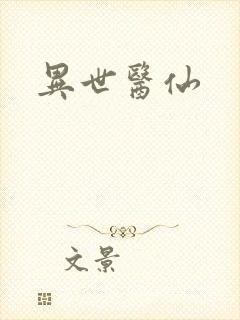 異世醫仙
文景